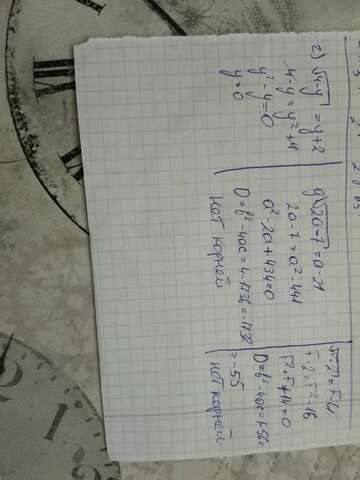 г) √4-y = y+2
4-y = y²+4
y²-y=0
y=0
д) √2a-7 = a-21
2a-7=a²-441
a²-2a+434=0
D=b²-4ac=4-1736=-1732
нет корней
F-2=F²-16
F²-F+14=0
D=b²-4ac=1-56=
=-55
нет корней